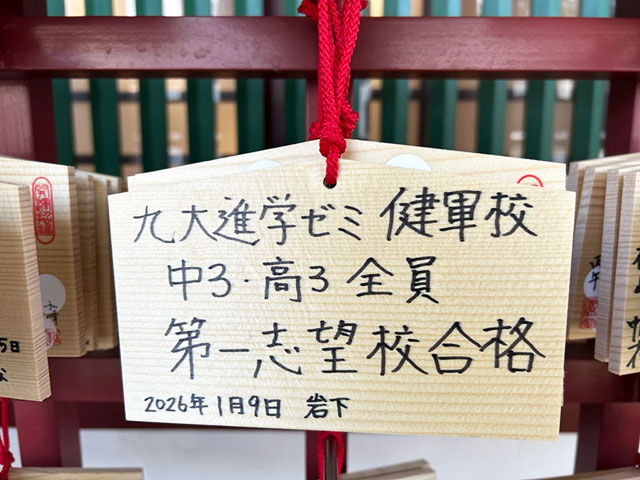 九大進学ゼミ 健軍校
中3・高3 全員
第一志望校合格
2026年1月9日 岩下